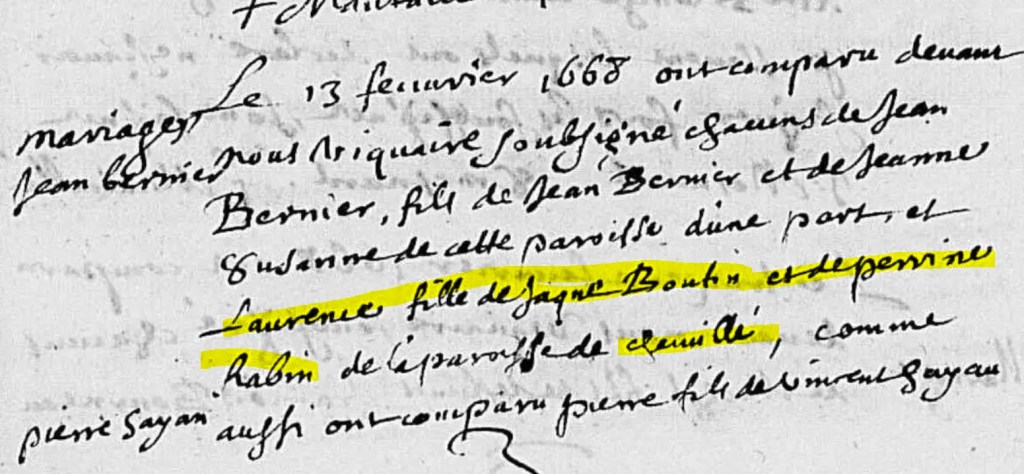 Le 13 feuurier 1668 ont comparu deuant
mariages
Jean bernier
nous viquaire soubsigné chacuns de Jean
Bernier, fils de Jean Bernier et de Jeanne
de cette paroisse d'une part, et
Laurence fille de Jaque Boutin et de perrine
Rabin de la paroisse de cheuillé, comme
pierre Gayau
aussi ont comparu pierre fils de vincent Gayau